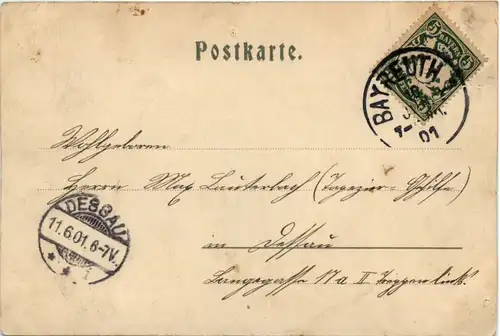 Postkarte.
BAYREUTH
01
Wohlgeboren
Herrn Max Lauterbach (Tapezier-Gehilfe)
in Dessau
Langegasse 17a II Treppen links.
DESSAU
11.6.01.6-7V.